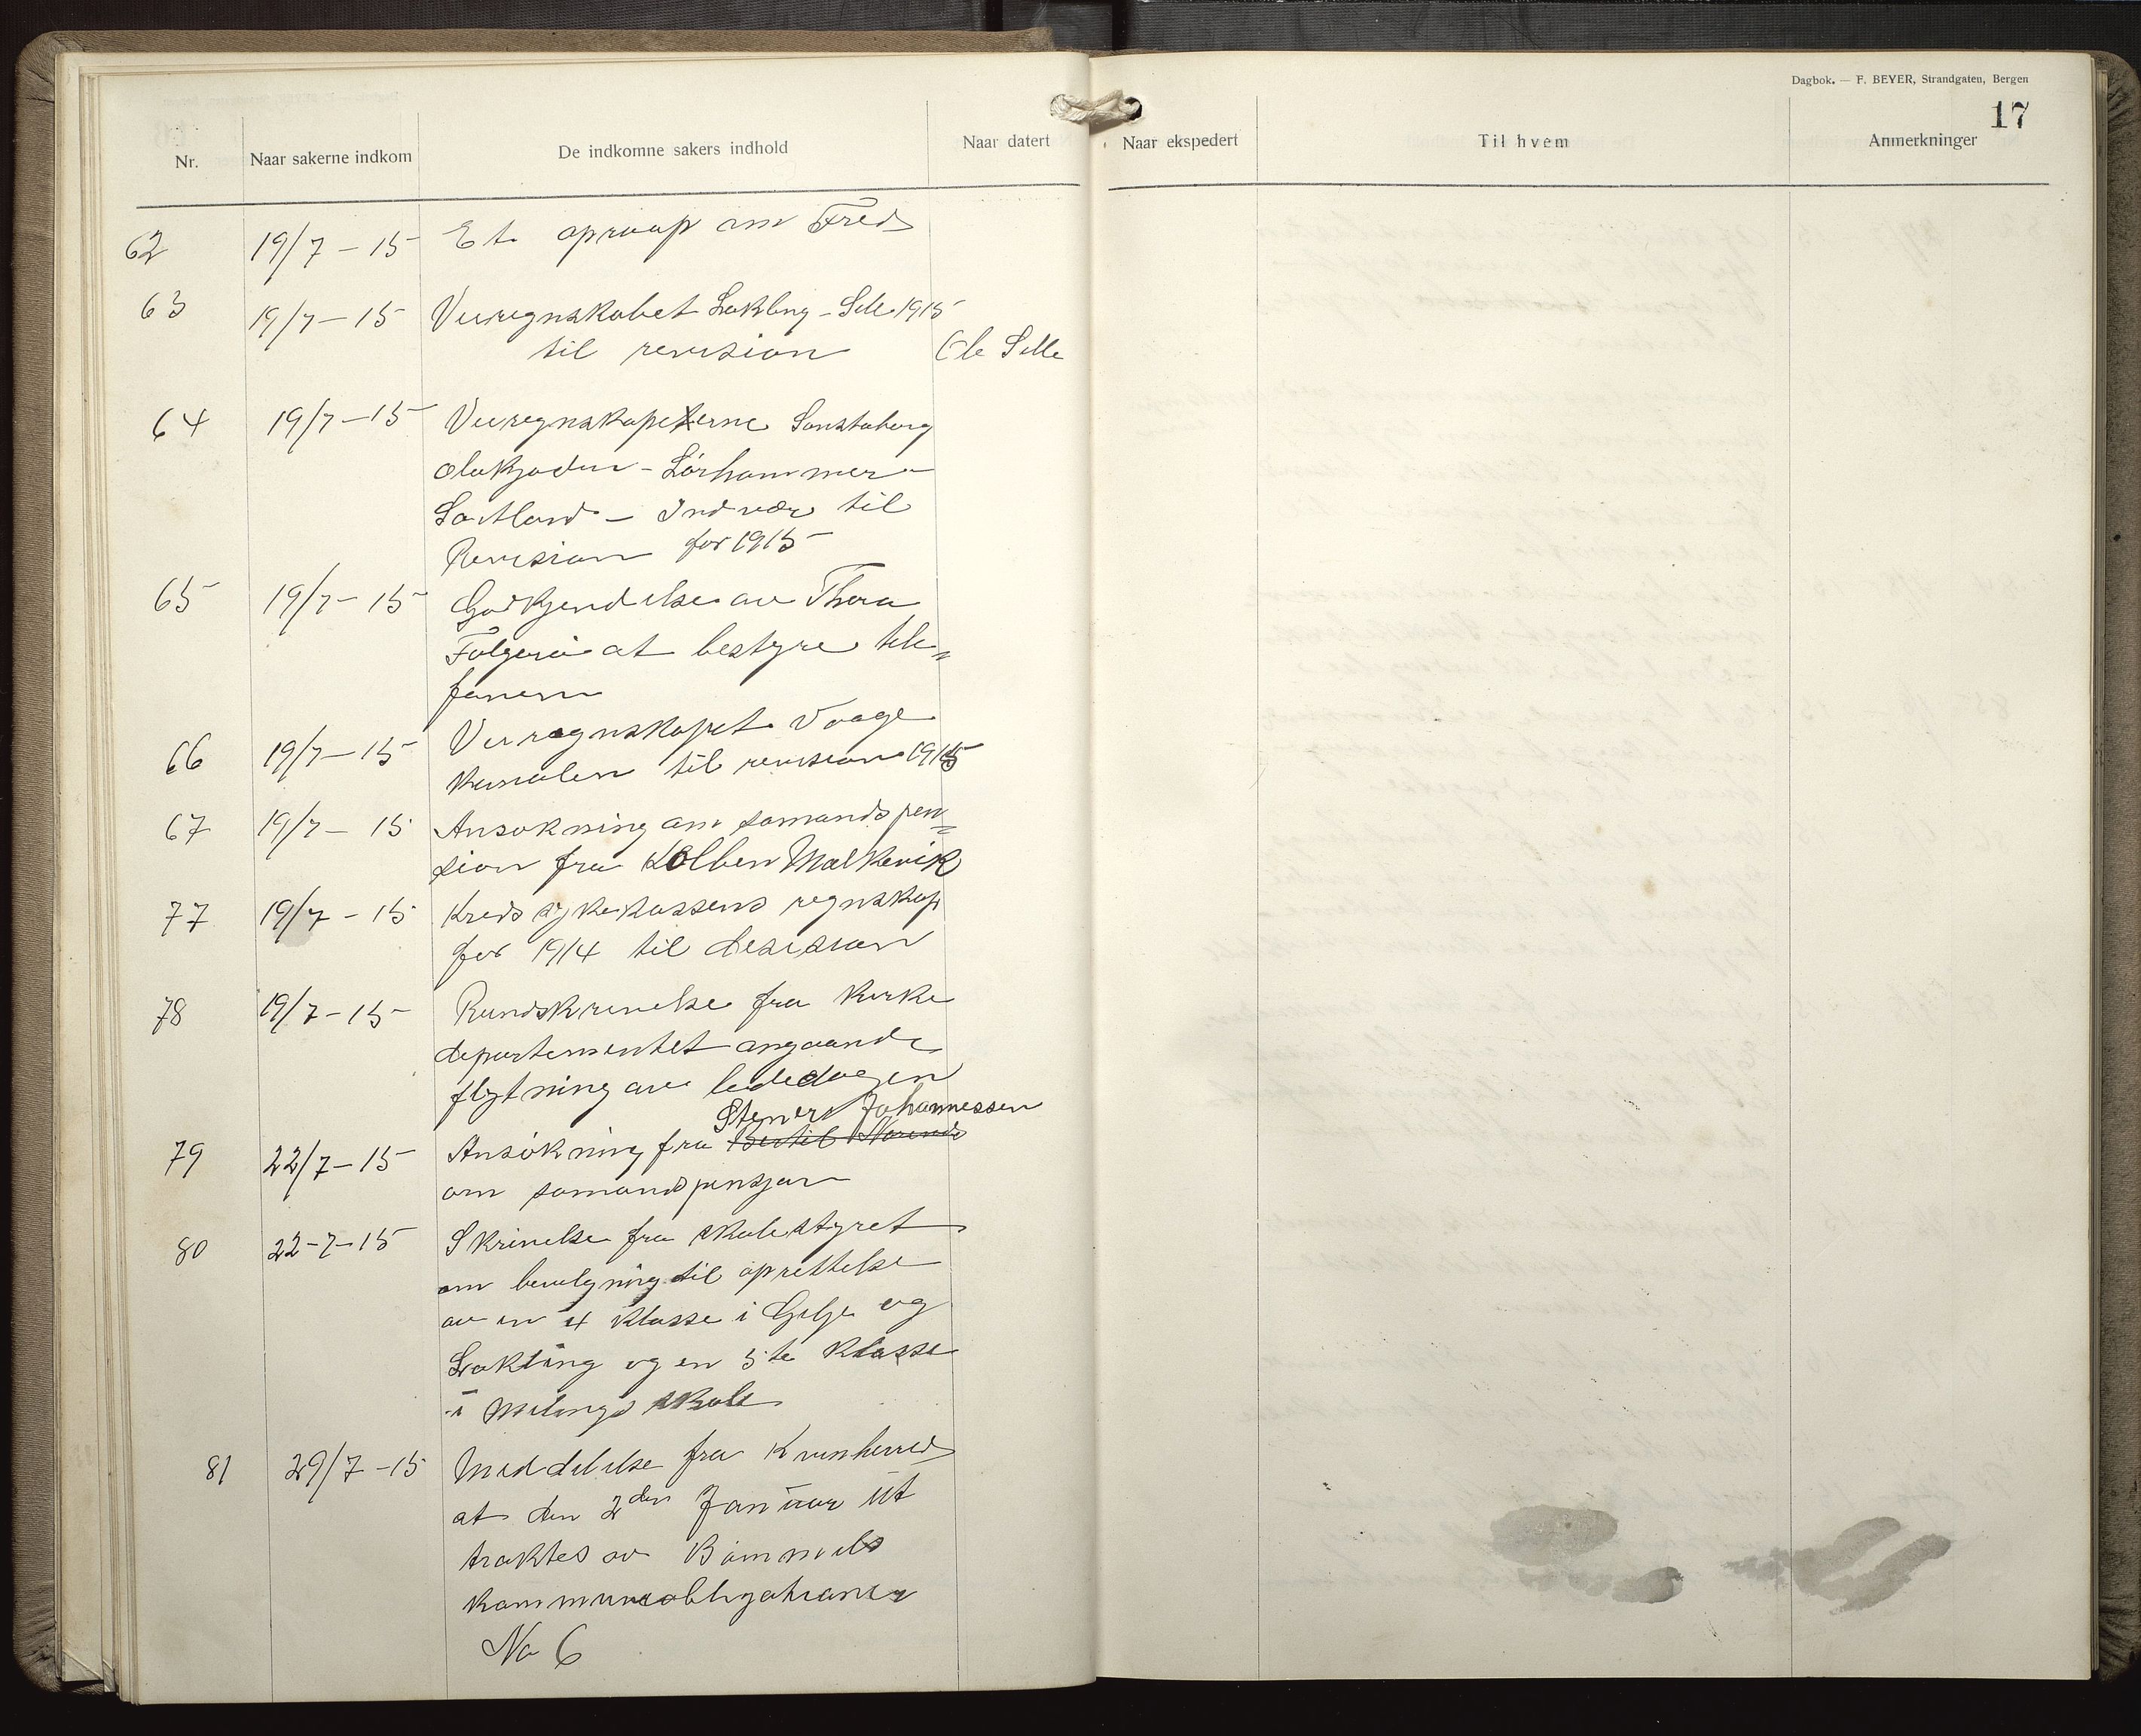 Dagbok. — F. BEYER, Strandgaten, Bergen
17
Nr. Naar sakerne indkom De indkomne sakers indhold Naar datert Naar ekspedert Til hvem Anmerkninger
62 19/7 - 15 Et opraap om Fred
63 19/7 - 15 Veiregnskabet Løkling - Sele 1915
til revision Ole Selle
64 19/7 - 15 Veiregnskapeterne
- Lørhammer
- Indvær til
Revision for 1915
65 19/7 - 15 Godkjendelse av Thora
Folgerø at bestyre tele=
fonen
66 19/7 - 15 Veiregnskapet Vaage
kanalen til revision 1915
67 19/7 - 15 Ansøkning om sømands pen=
sion fra Kolben Mælkevik
77 19/7 - 15 Kreds sykekassens regnskap
for 1914 til desision
78 19/7 - 15 Rundskrivelse fra kirke
departementet angaaende
flytning av bededagen
Stener Johannessen
79 22/7 - 15 Ansökning fra Bertil
om sømandspensjon
80 22-7-15 Skrivelse fra skolestyret
om bevilgning til oprettelse
av en 4 klasse i Gilje og
Løkling og en 5te klasse
i Mælings skole
81 29/7 - 15 Meddelelse fra Kvinherred
at den 2den Januar üt
traktes av Bømmels
kommuneobligationer
No 6